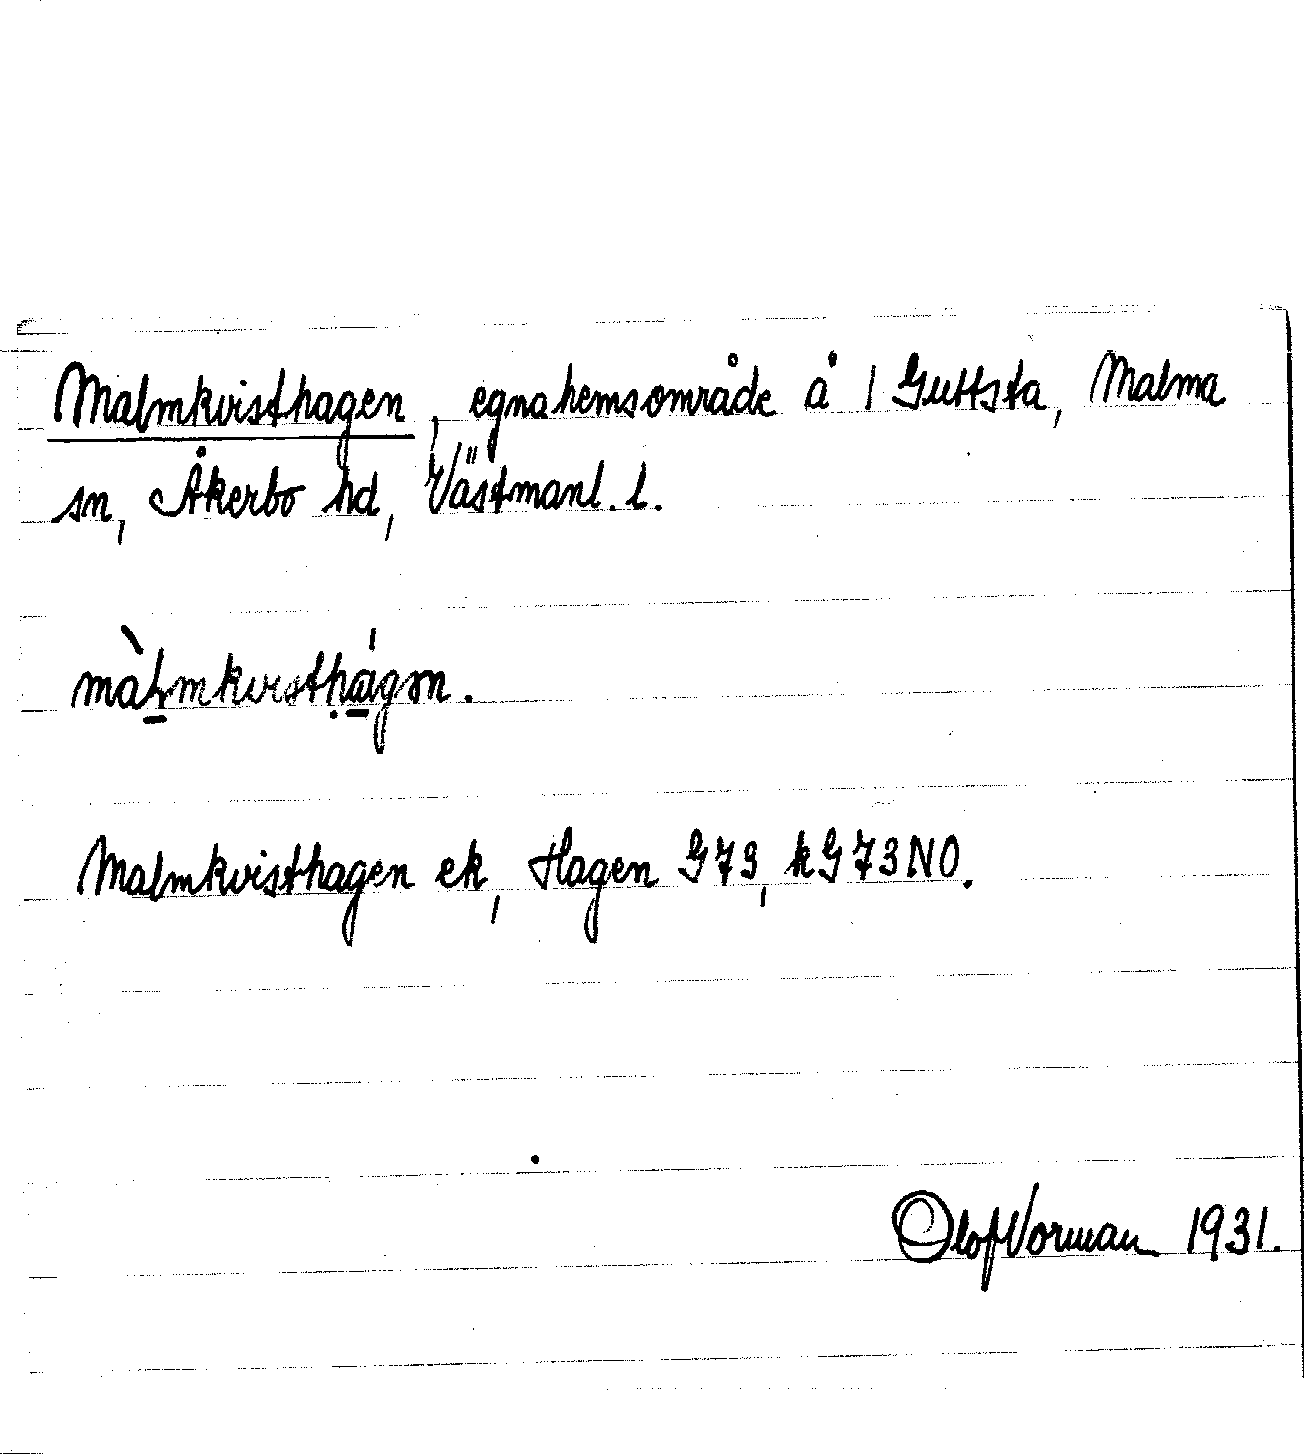 Malmkvisthagen, egnahemsområde å 1 Guttsta, Malma
sn, Åkerbo hd, Västmanl. l.
màlmkvisthágən.
Malmkvisthagen ek, Hagen G73, kG73NO.
Olof Vorman 1931.